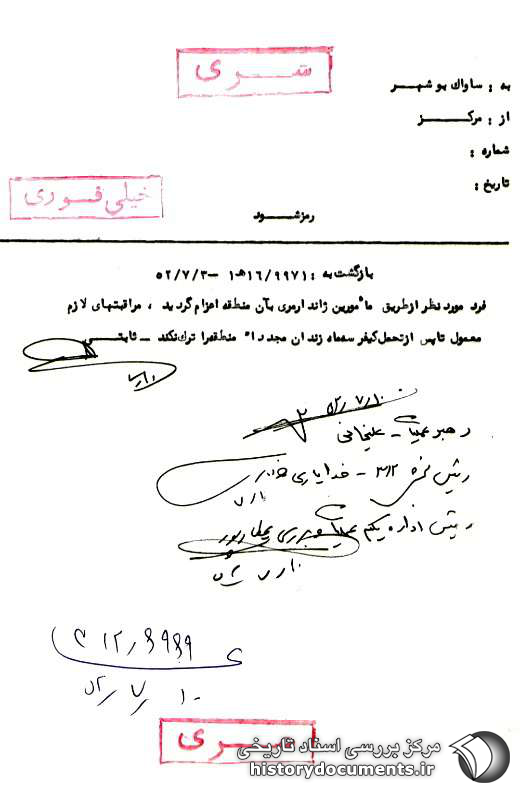 سری
به : ساواك بوشهر
از : مرکز
شماره :
تاریخ :
خیلی فوری
رمز شود
بازگشت به : ۱۶/۹۹۷۱ه‍۱ - ۵۲/۷/۳
فرد مورد نظر از طریق مأمورین ژاندارمری بآن منطقه اعزام گردید ، مراقبتهای لازم
معمول تا پس از تحمل کیفر سه‌ماه زندان مجدداً منطقه را ترک نکند - ثابتی
۵۲/۷/۱۰
رهبر عملیات - علیخانی
رئیس بخش ۳۱۲ - خدایاری
رئیس اداره یکم عملیات و بررسی
۵۲/۷/۱۰
سری
مرکز بررسی اسناد تاریخی
historydocuments.ir